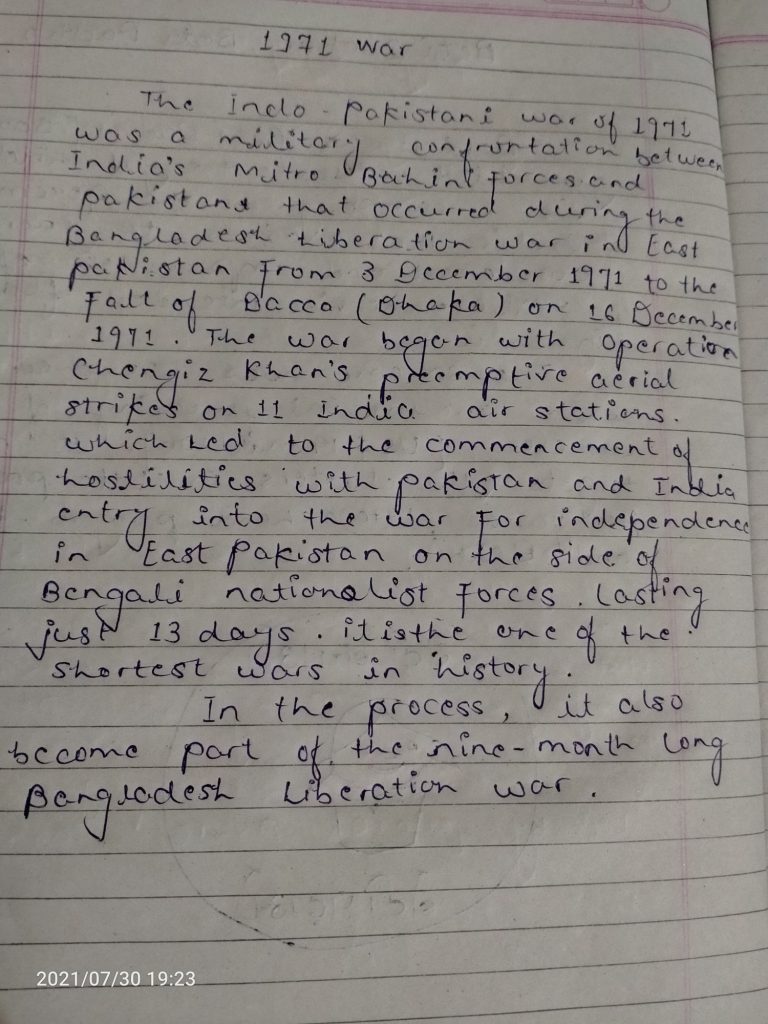 1971 War
The Indo-Pakistani war of 1971
was a military confrontation between
India's Mitro Bahini Forces and
pakistans that occurred during the
Bangladesh Liberation war in East
pakistan From 3 December 1971 to the
Fall of Dacca (Dhaka) on 16 December
1971. The war began with operation
Chengiz Khan's preemptive aerial
strikes on 11 India air stations.
which Led to the commencement of
hostilities with pakistan and India
entry into the war For independence
in East Pakistan on the side of
Bengali nationalist Forces. Lasting
just 13 days. it isthe one of the
shortest wars in history.
In the process, it also
become part of the nine-month long
Bangladesh Liberation war.
2021/07/30 19:23